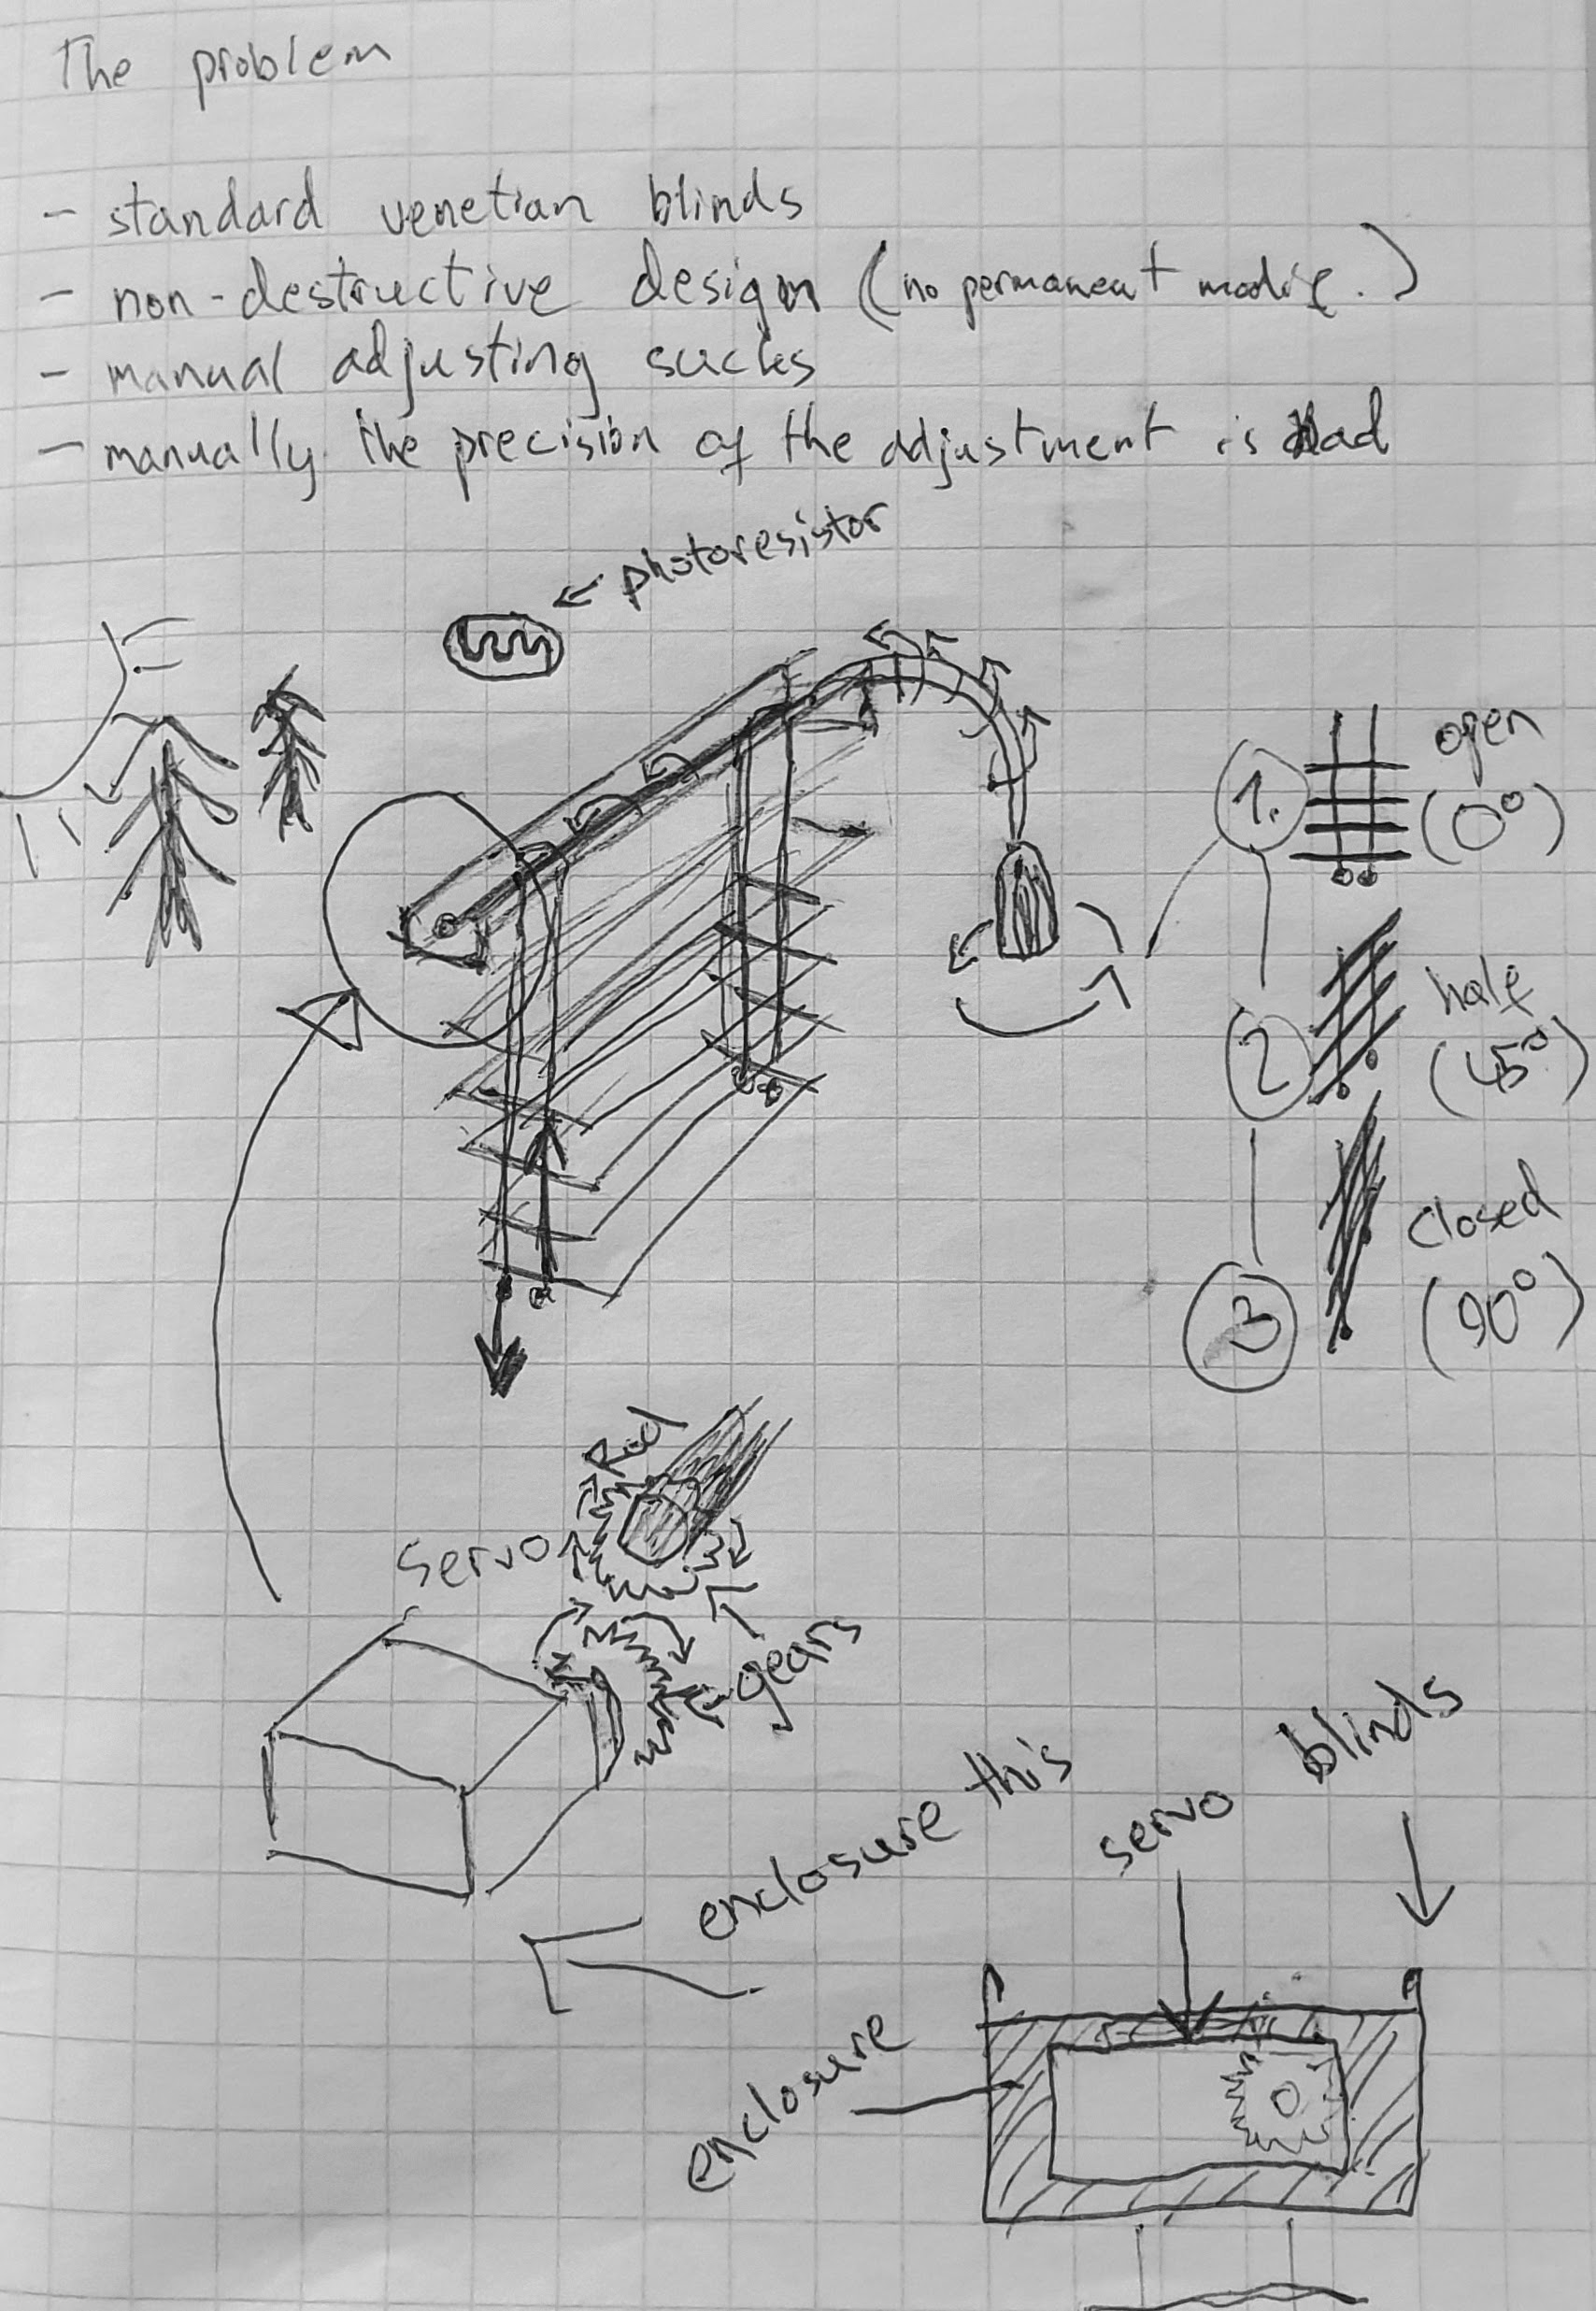 The problem
- standard venetian blinds
- non-destructive design (no permanent modif.)
- manual adjusting sucks
- manually the precision of the adjustment is bad
← photoresistor
1. open
(0°)
2 half
(45°)
3 closed
(90°)
Rod
servo
gears
enclosure this
servo
blinds
enclosure